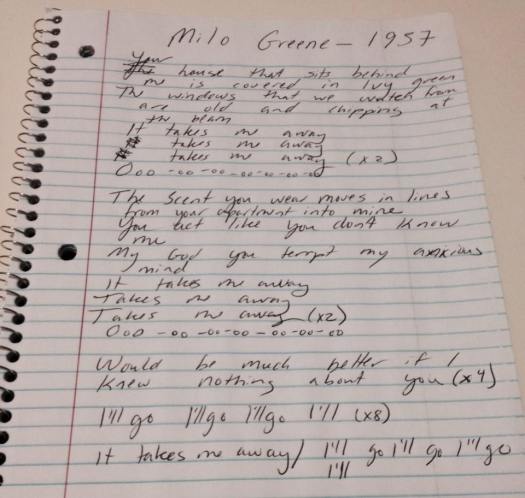 Milo Greene - 1957
Your
The house that sits behind
me is covered in Ivy green
The windows that we watch from
are old and chipping at
the beam
It takes me away
takes me away
takes me away (x2)
Ooo -oo -oo -oo-oo-oo
The scent you wear moves in lines
from your apartment into mine
You act like you don't know
me
My God you tempt my anxious
mind
It takes me away
Takes me away
Takes me away (x2)
Ooo -oo -oo-oo -oo-oo
Would be much better if I
knew nothing about you (x4)
I'll go I'll go I'll go I'll (x8)
It takes me away/ I'll go I'll go I'll go
I'll